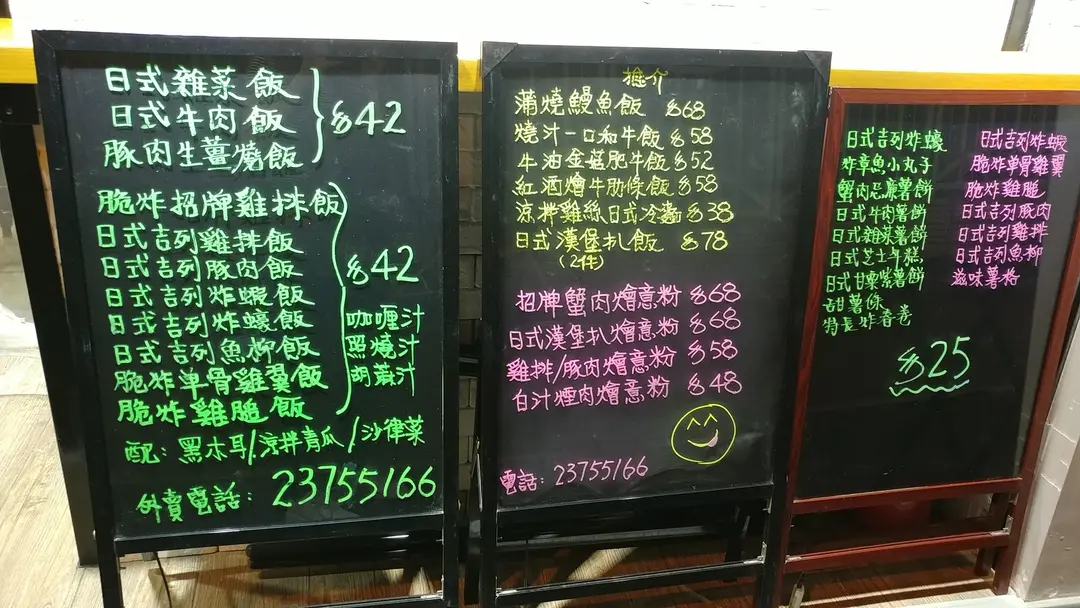 日式雜菜飯
日式牛肉飯
豚肉生薑燒飯
$42
脆炸招牌雞排飯
日式吉列雞排飯
日式吉列豚肉飯
日式吉列炸蝦飯
日式吉列炸蠔飯
日式吉列魚柳飯
脆炸单骨雞翼飯
脆炸雞膇飯
$42
咖喱汁
照燒汁
胡蔴汁
配：黑木耳/涼拌青瓜/沙律菜
外賣電話：23755166
推介
蒲燒鰻魚飯 $68
燒汁一口和牛飯 $58
牛油金菇肥牛飯 $52
紅酒燴牛肋條飯 $58
涼拌雞絲日式冷麵 $38
日式漢堡扒飯 $78
(2件)
招牌蟹肉燴意粉 $68
日式漢堡扒燴意粉 $68
雞排/豚肉燴意粉 $58
白汁煙肉燴意粉 $48
電話：23755166
日式吉列炸蠔
炸章魚小丸子
蟹肉忌廉薯餅
日式牛肉薯餅
日式雜菜薯餅
日式芝士年糕
日式甘栗紫薯餅
甜薯條
特長炸春卷
日式吉列炸蝦
脆炸单骨雞翼
脆炸雞膇
日式吉列豚肉
日式吉列雞排
日式吉列魚柳
滋味薯格
$25